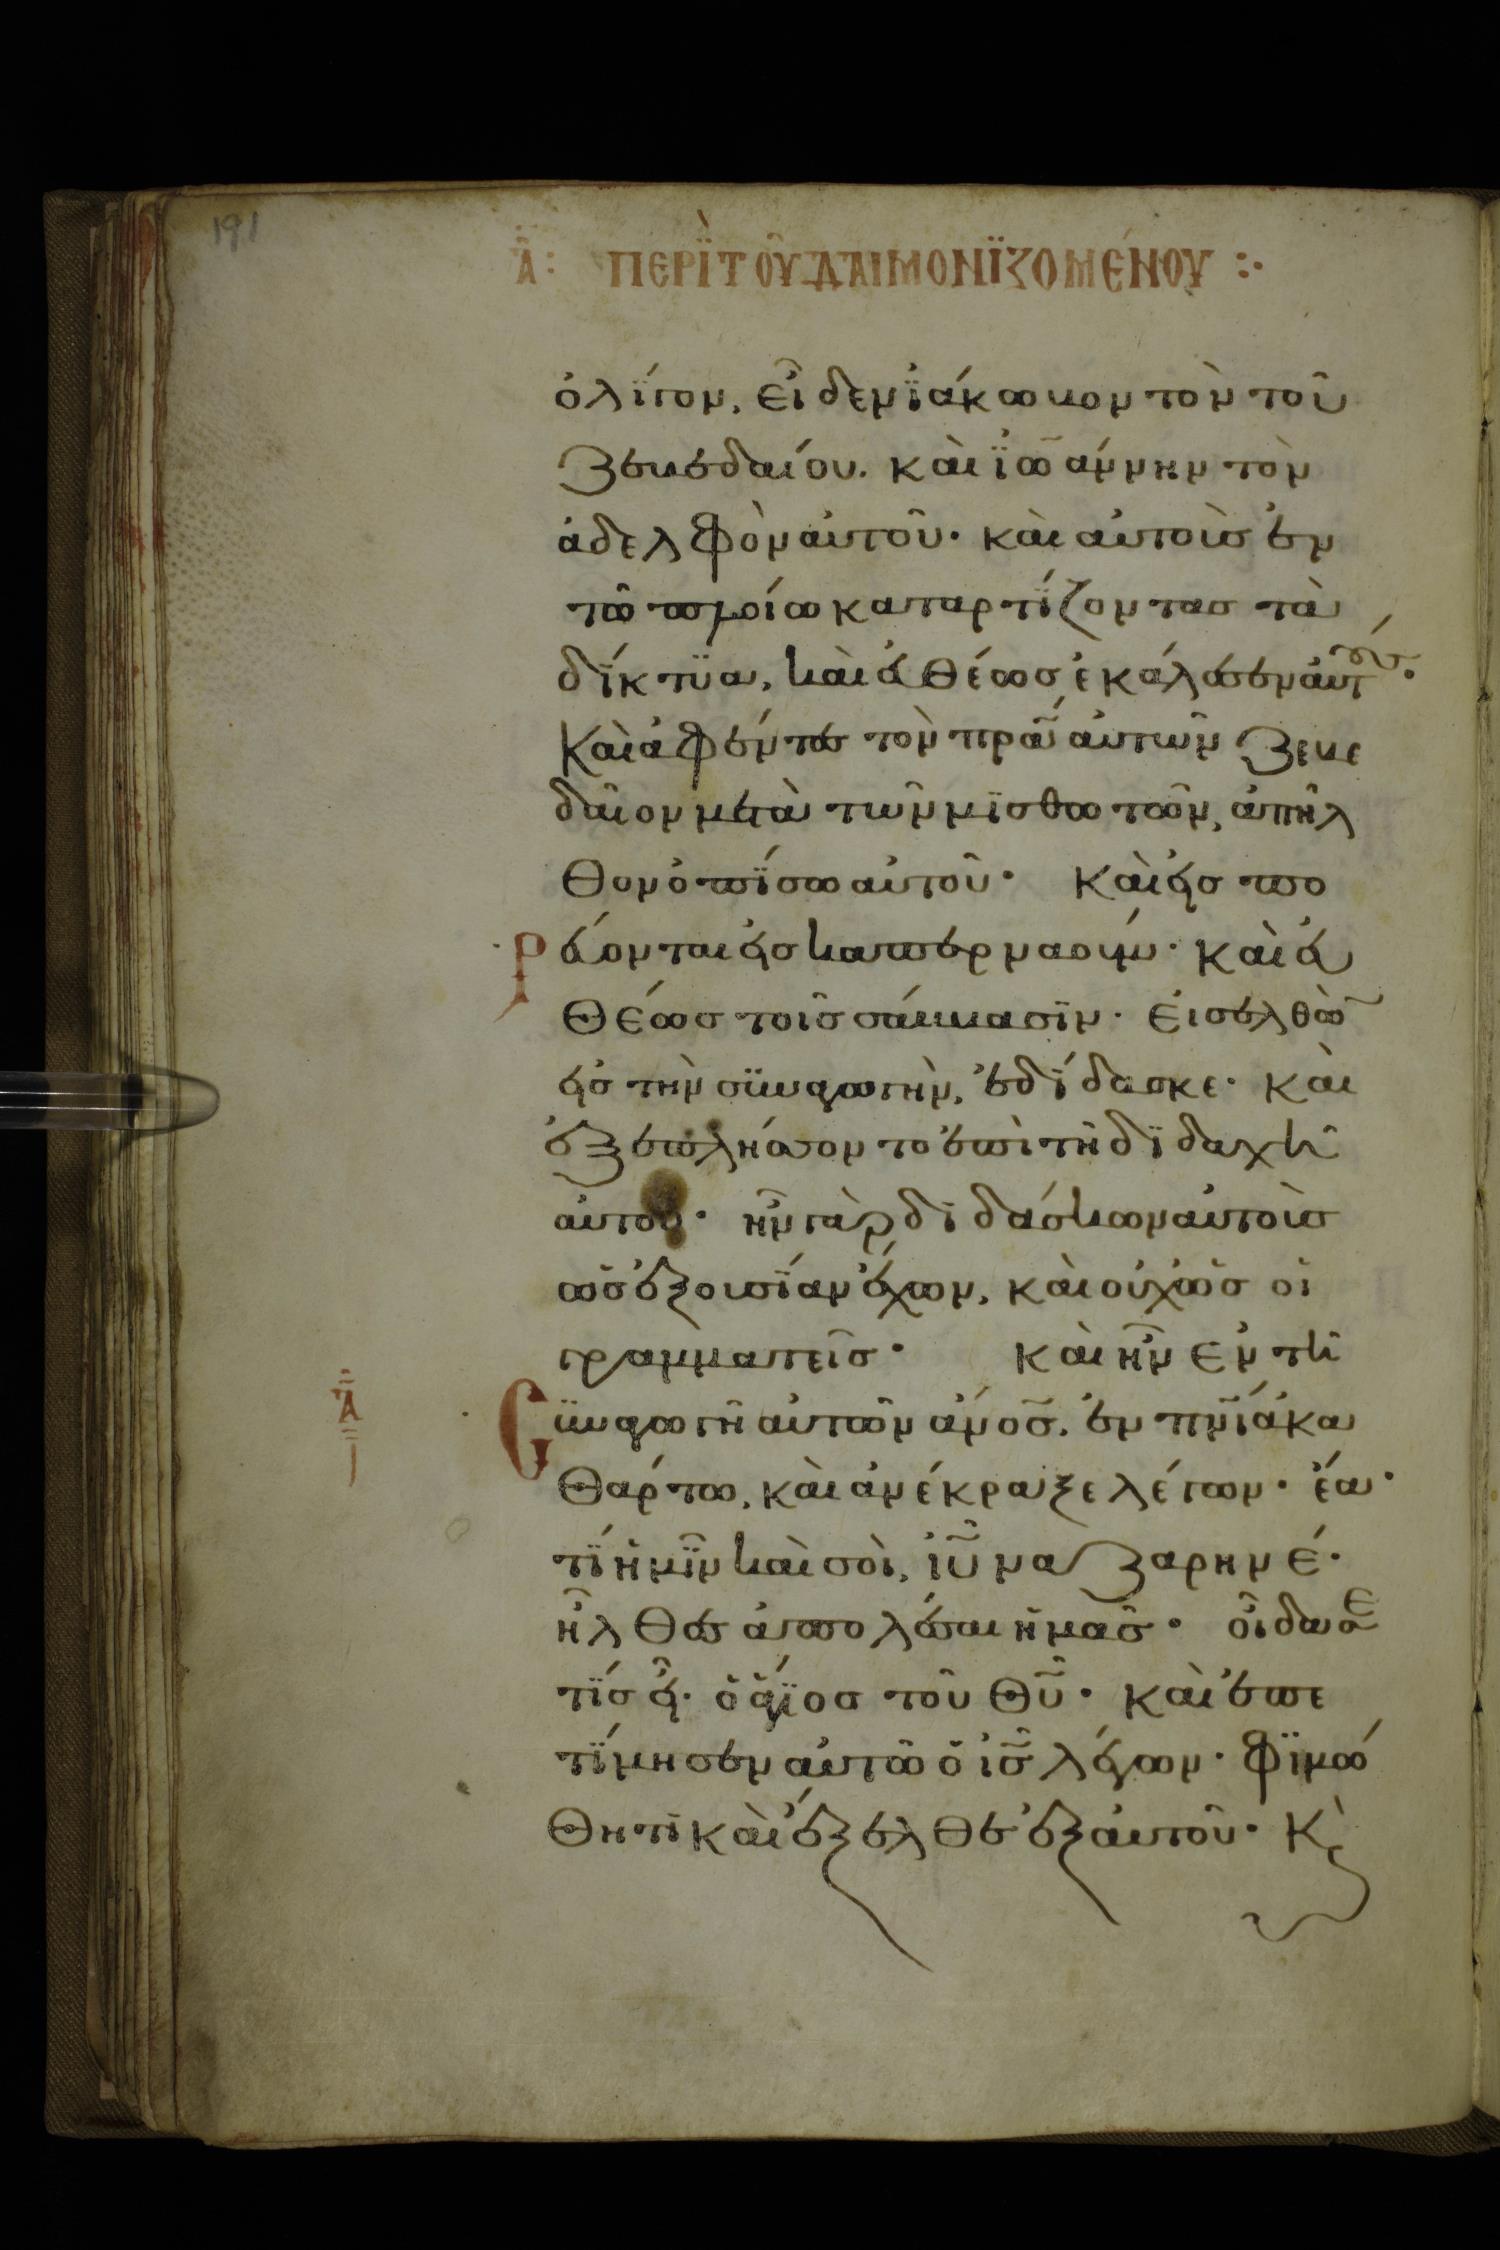 191
Α: ΠΕΡΪ ΤΟΥ ΔΑΙΜΟΝΪΖΟΜΕΝΟΥ :·
ὀλΐγον, εἶδεν ϊάκωβον τὸν τοῦ
ζεβεδαίου. καὶ ϊω̃άννην τὸν
ἀδελφὸν αὐτοῦ· καὶ αὐτοὺσ ἐν
τῶ πλοίω καταρτΐζοντασ τὰ
δΐκτϋα, καὶ εὐθέωσ ἐκάλεσεν αὐτούσ·
καὶ ἀφέντεσ τὸν πρ̃α αὐτῶν ζεβε
δαῖον μετὰ τῶν μϊσθωτῶν, ἀπῆλ
θον ὀπΐσω αὐτοῦ· καὶ εἰσπο
ρεύονται εἰσ καπερναούμ· καὶ εὐ
θέωσ τοῖσ σάββασϊν· εἰσελθὼ̃
εἰσ τὴν συναγωγὴν, ἐδΐδασκε· καὶ
ἐξεπλήσσοντο ἐπὶ τῆ δϊδαχῆ
αὐτοῦ· ἦν γὰρ δϊδάσκων αὐτοὺσ
ὡσ ἐξουσΐαν ἔχων, καὶ οὐχ ὡσ οἱ
γραμματεῖσ· καὶ ἦν ἐν τῆ
Α
συναγωγῆ αὐτῶν ἀν̃οσ. ἐν πν̃ι ἀκα
θάρτω, καὶ ἀνέκραξε λέγων· ἔα·
τΐ ἡμῖν καὶ σοὶ, ἰῦ ναζαρηνέ·
ἦλθεσ ἀπολέσαι ἡμᾶσ· οἶδα σε
τΐσ εἶ· ὁ ἅγϊοσ τοῦ θῦ· καὶ ἐπε
τΐμησεν αὐτῶ ὁ ἰ̃σ λέγων· φϊμώ
θητι καὶ ἔξελθε ἐξ αὐτοῦ· κ̀